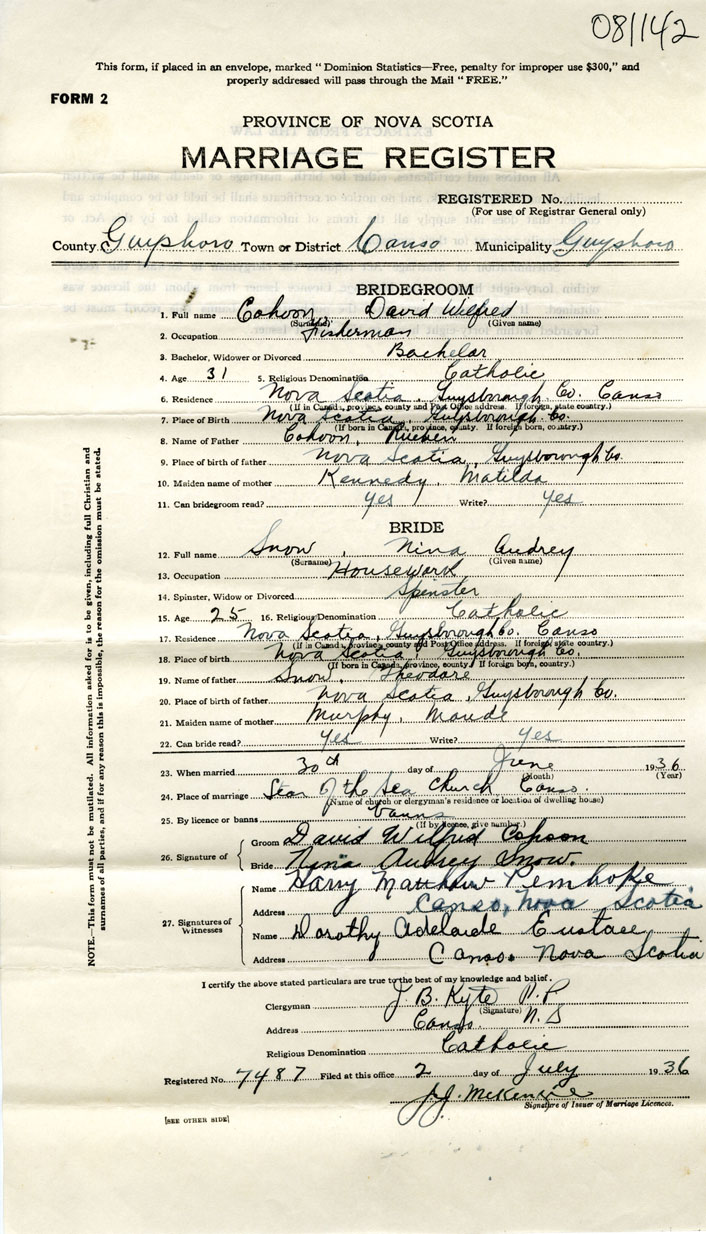 081142
This form, if placed in an envelope, marked "Dominion Statistics—Free, penalty for improper use $300," and
properly addressed will pass through the Mail "FREE."
FORM 2
PROVINCE OF NOVA SCOTIA
MARRIAGE REGISTER
REGISTERED No.
(For use of Registrar General only)
County Guysboro Town or District Canso Municipality Guysboro
BRIDEGROOM
1. Full name Cohoon, David Wilfred
(Surname) (Given name)
2. Occupation Fisherman
3. Bachelor, Widower or Divorced Bachelor
4. Age 31 5. Religious Denomination Catholic
6. Residence Nova Scotia, Guysborough Co. Canso
(If in Canada, province, county and Post Office address. If foreign, state country.)
7. Place of Birth Nova Scotia, Guysborough Co.
(If born in Canada, province, county. If foreign born, country.)
8. Name of Father Cohoon, Rueben
9. Place of birth of father Nova Scotia, Guysborough Co.
10. Maiden name of mother Kennedy, Matilda
11. Can bridegroom read? Yes Write? Yes
BRIDE
12. Full name Snow, Nina Audrey
(Surname) (Given name)
13. Occupation Housework
14. Spinster, Widow or Divorced Spenster
15. Age 25 16. Religious Denomination Catholic
17. Residence Nova Scotia, Guysborough Co. Canso
(If in Canada, province county and Post Office address. If foreign, state country.)
18. Place of birth Nova Scotia, Guysborough Co.
(If born in Canada, province, county. If foreign born, country.)
19. Name of father Snow, Theodore
20. Place of birth of father Nova Scotia, Guysborough Co.
21. Maiden name of mother Murphy, Maude
22. Can bride read? Yes Write? Yes
23. When married 30th day of June 1936
(Month) (Year)
24. Place of marriage Star of the Sea Church Canso
(Name of church or clergyman's residence or location of dwelling house)
25. By licence or banns banns
(If by licence, give number.)
26. Signature of
Groom David Wilfred
Bride Nina Audrey Snow.
27. Signatures of Witnesses
Name Harry Matthew Pembroke
Address Canso, Nova Scotia
Name Dorothy Adelaide Eustace
Address Canso Nova Scotia
I certify the above stated particulars are true to the best of my knowledge and belief.
Clergyman J. B. Kyte P.P.
(Signature)
Address Canso. N.S
Religious Denomination Catholic
Registered No. 7487 Filed at this office 2 day of July 1936
J.J. McKenzie
Signature of Issuer of Marriage Licences.
[SEE OTHER SIDE]
NOTE.—This form must not be mutilated. All information asked for is to be given, including full Christian and
surnames of all parties, and if for any reason this is impossible, the reason for the omission must be stated.